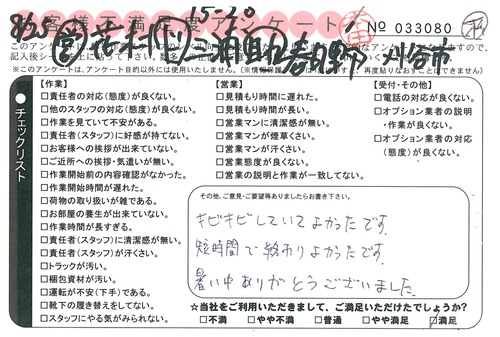 お客様不満足度アンケート
15-20
No 033080
刈谷市
このアンケートは、
記入後シールの上に貼って下さい。
※このアンケートは、アンケート目的以外には使用いたしません。
●チェックリスト
【作業】
□責任者の対応(態度)が良くない。
□他のスタッフの対応(態度)が良くない。
□作業を見ていて不安がある。
□責任者(スタッフ)に好感が持てない。
□お客様への挨拶が出来ていない。
□ご近所への挨拶・気遣いが無い。
□作業開始前の内容確認がなかった。
□作業開始時間が遅れた。
□荷物の取り扱いが雑である。
□お部屋の養生が出来ていない。
□作業時間が長すぎる。
□責任者(スタッフ)に清潔感が無い。
□責任者(スタッフ)が汗くさい。
□トラックが汚い。
□梱包資材が汚い。
□運転が不安(下手)である。
□靴下の履き替えをしてない。
□スタッフにやる気がみられない。
【営業】
□見積もり時間に遅れた。
□見積もり時間が長い。
□営業マンに清潔感が無い。
□営業マンが煙草くさい。
□営業マンが汗くさい。
□営業態度が良くない。
□営業の説明と作業が一致してない。
【受付・その他】
□電話の対応が良くない。
□オプション業者の説明
・作業が良くない。
□オプション業者の対応
(態度)が良くない。
その他、ご意見・ご要望等ありましたらお書き下さい。
キビキビしていてよかったです。
短時間で終わりよかったです。
暑い中ありがとうございました。
☆当社をご利用いただきまして、ご満足いただけたでしょうか?
□不満 □やや不満 □普通 □やや満足 ☑満足